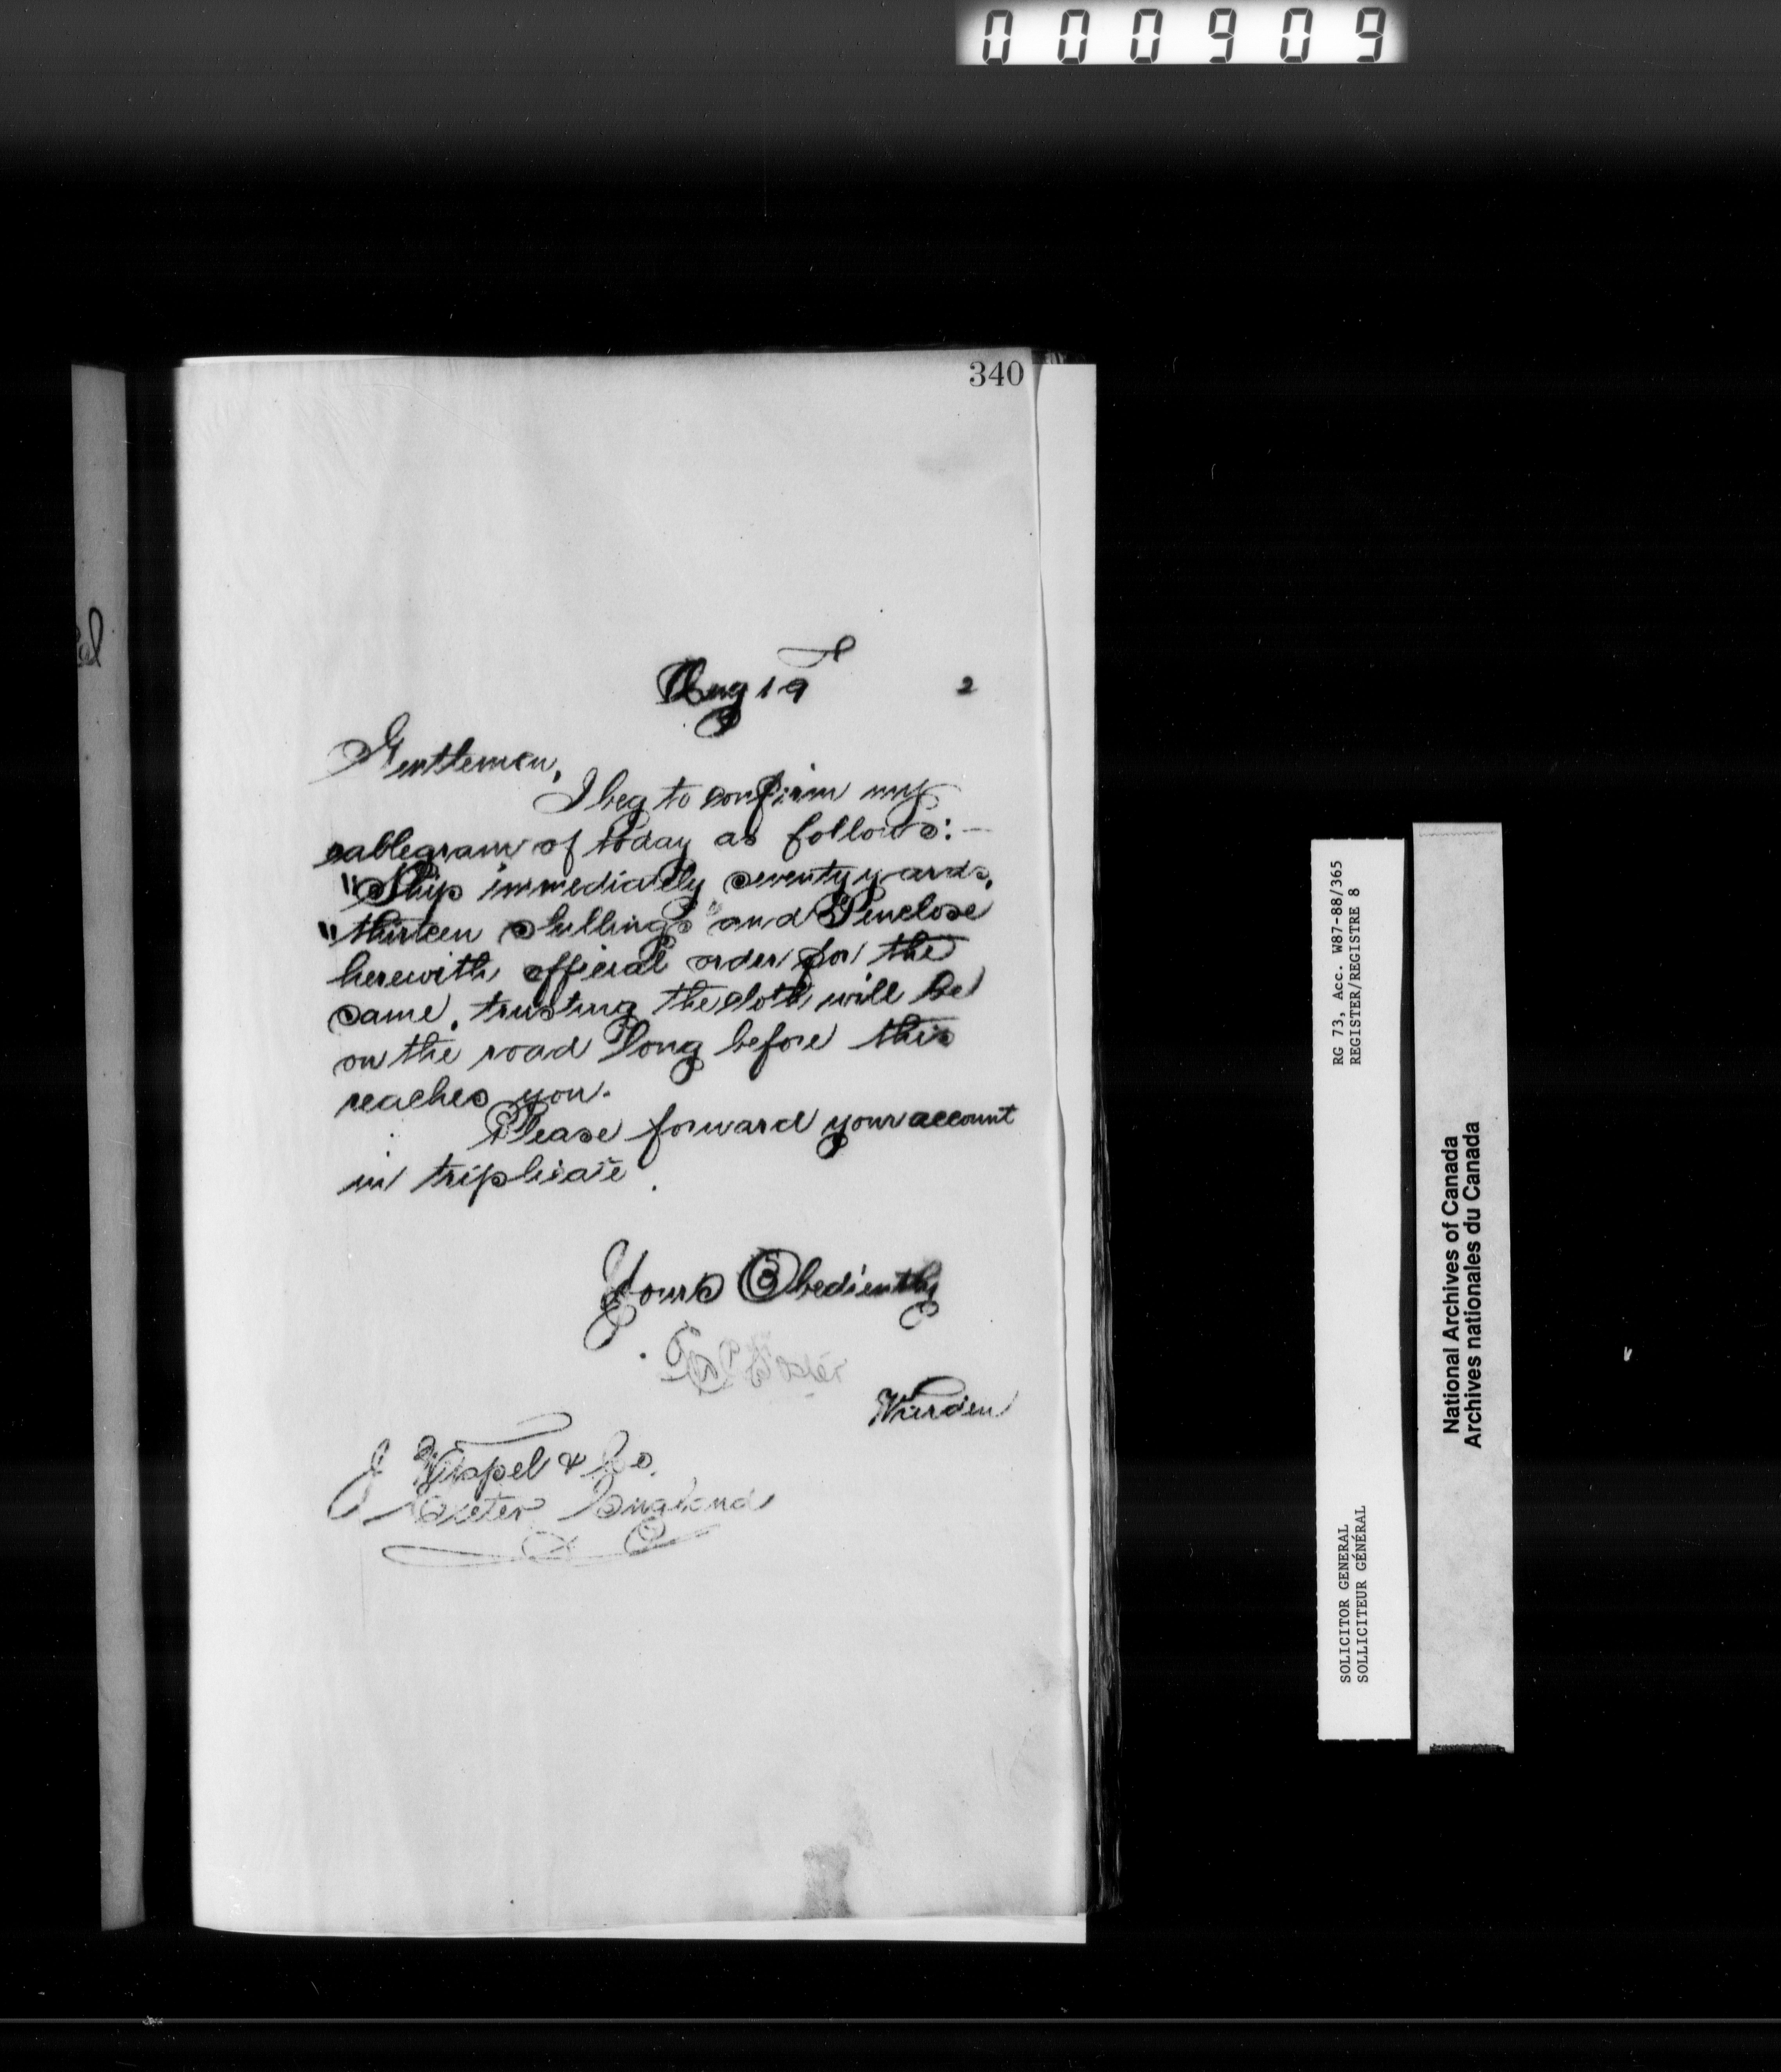 000909
340
Aug 19th 2
Gentlemen,
I beg to confirm my
cablegram of today as follows:—
"Ship immediately seventy yards,
"thirteen shillings" and I enclose
herewith official order for the
same, trusting the cloth will be
on the road long before this
reaches you.
Please forward your account
in triplicate.
Yours Obediently
Foster
Warden
J Wippel & Co.
Exeter England
RG 73, Acc. W87-88/365
REGISTER/REGISTRE 8
SOLICITOR GENERAL
SOLLICITEUR GÉNÉRAL
National Archives of Canada
Archives nationales du Canada